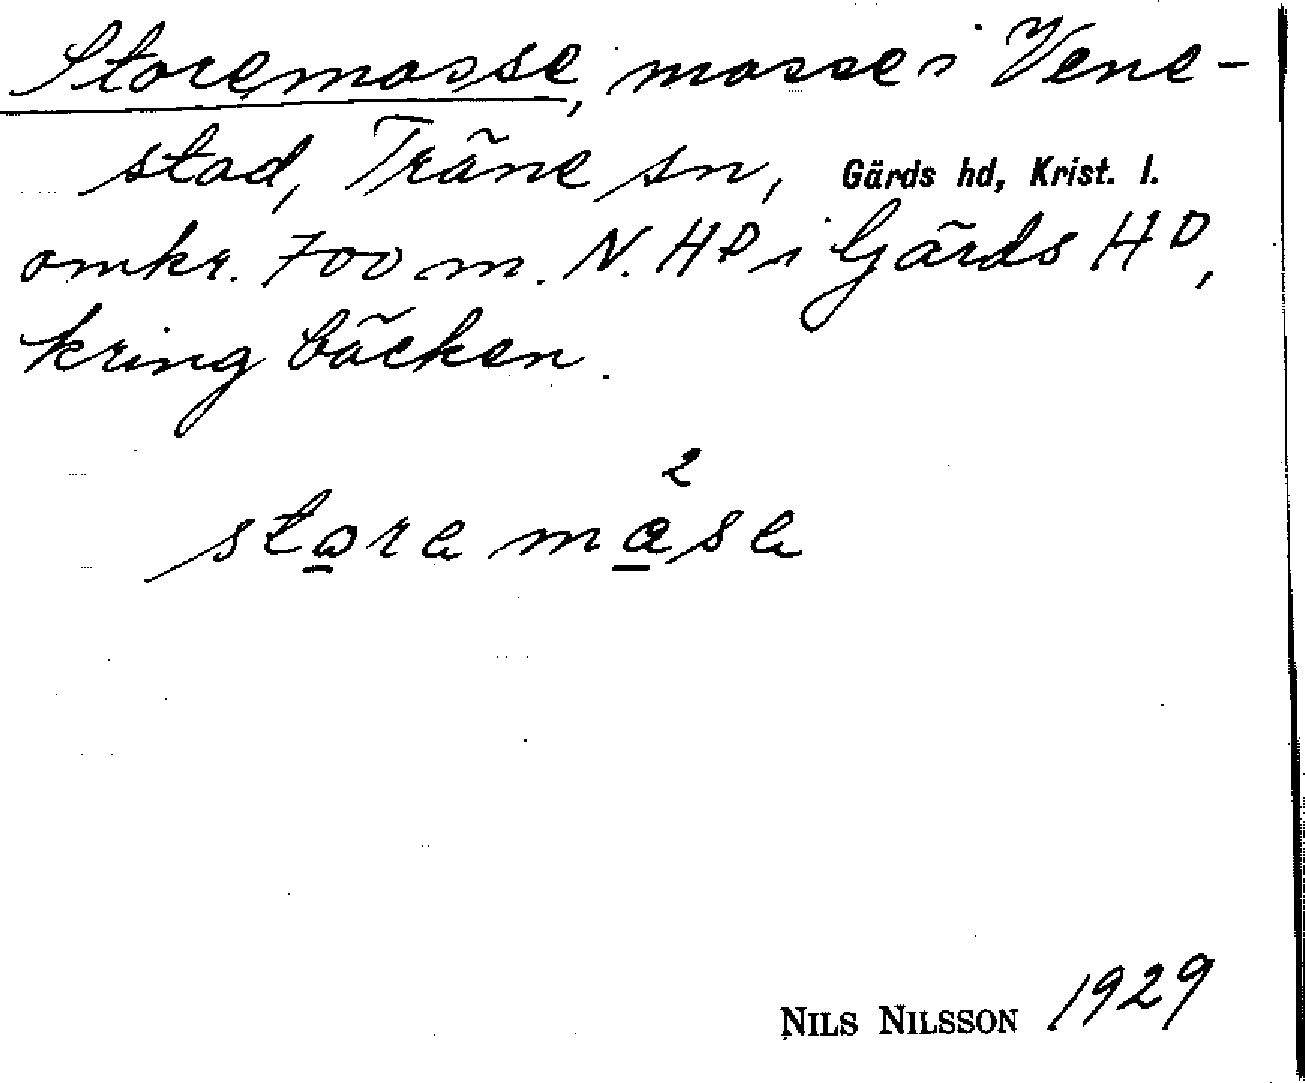 Storemosse, mosse i Vene-
stad, Träne sn, Gärds hd, Krist. l.
omkr. 700 m. N. HD i Gärds HD,
kring bäcken.
2
store måse
NILS NILSSON 1929